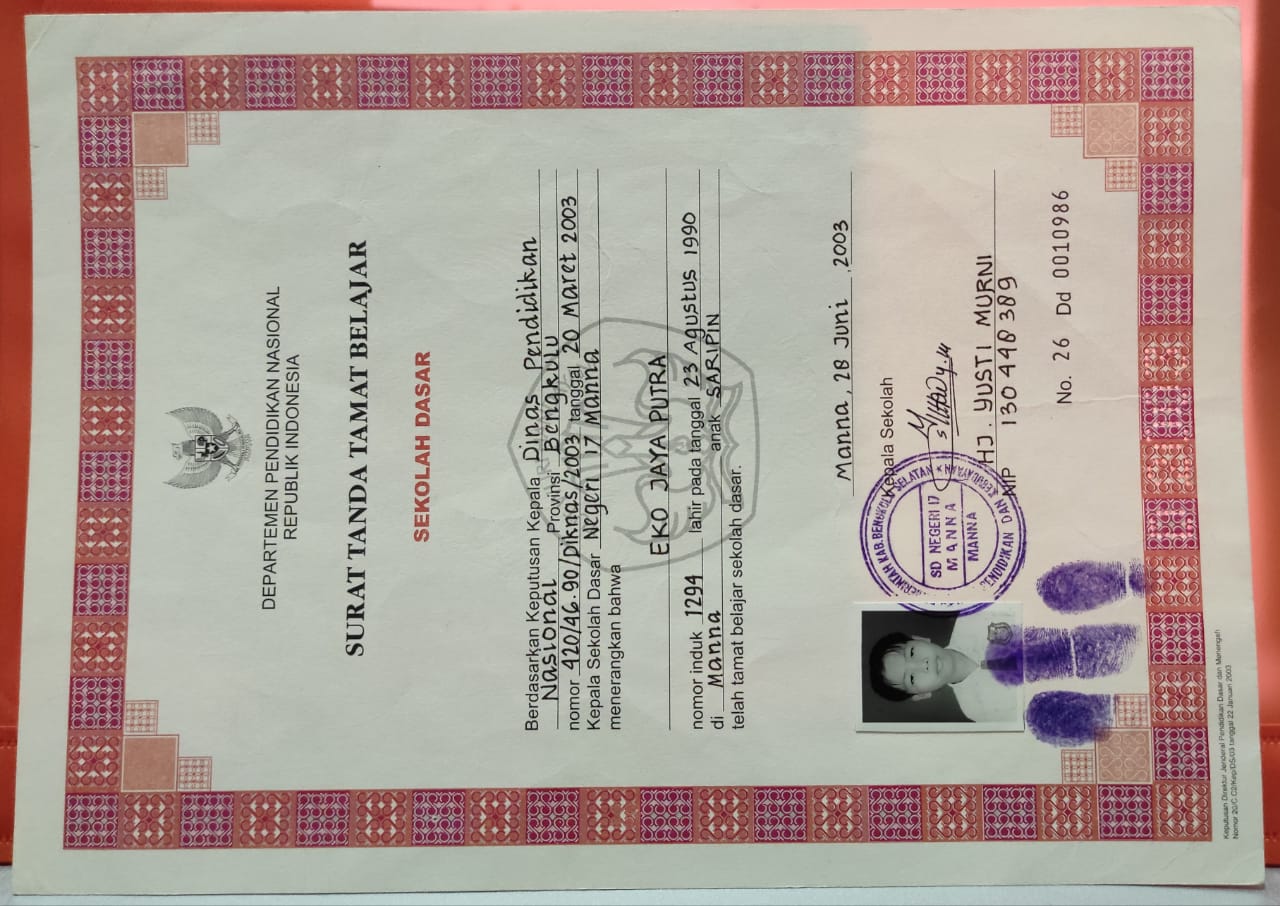 DEPARTEMEN PENDIDIKAN NASIONAL
REPUBLIK INDONESIA
SURAT TANDA TAMAT BELAJAR
SEKOLAH DASAR
Berdasarkan Keputusan Kepala Dinas Pendidikan
Nasional Provinsi Bengkulu
nomor 420/46.90/Diknas/2003 tanggal 20 Maret 2003
Kepala Sekolah Dasar Negeri 17 Manna
menerangkan bahwa
EKO JAYA PUTRA
nomor induk 1294 lahir pada tanggal 23 Agustus 1990
di Manna anak SARIPIN
telah tamat belajar sekolah dasar.
Manna, 28 Juni, 2003
Kepala Sekolah
KAB. BENGKULU SELATAN
SD NEGERI 17
MANNA
MANNA
PENDIDIKAN DAN KEBUDAYAAN
HJ. YUSTI MURNI
NIP 130 448 389
No. 26 Dd 0010986
Keputusan Direktur Jenderal Pendidikan Dasar dan Menengah
Nomor 20/C.C2/Kep/DS/03 tanggal 22 Januari 2003